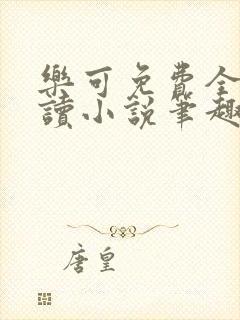 樂可免費全
讀小說筆趣
唐皇